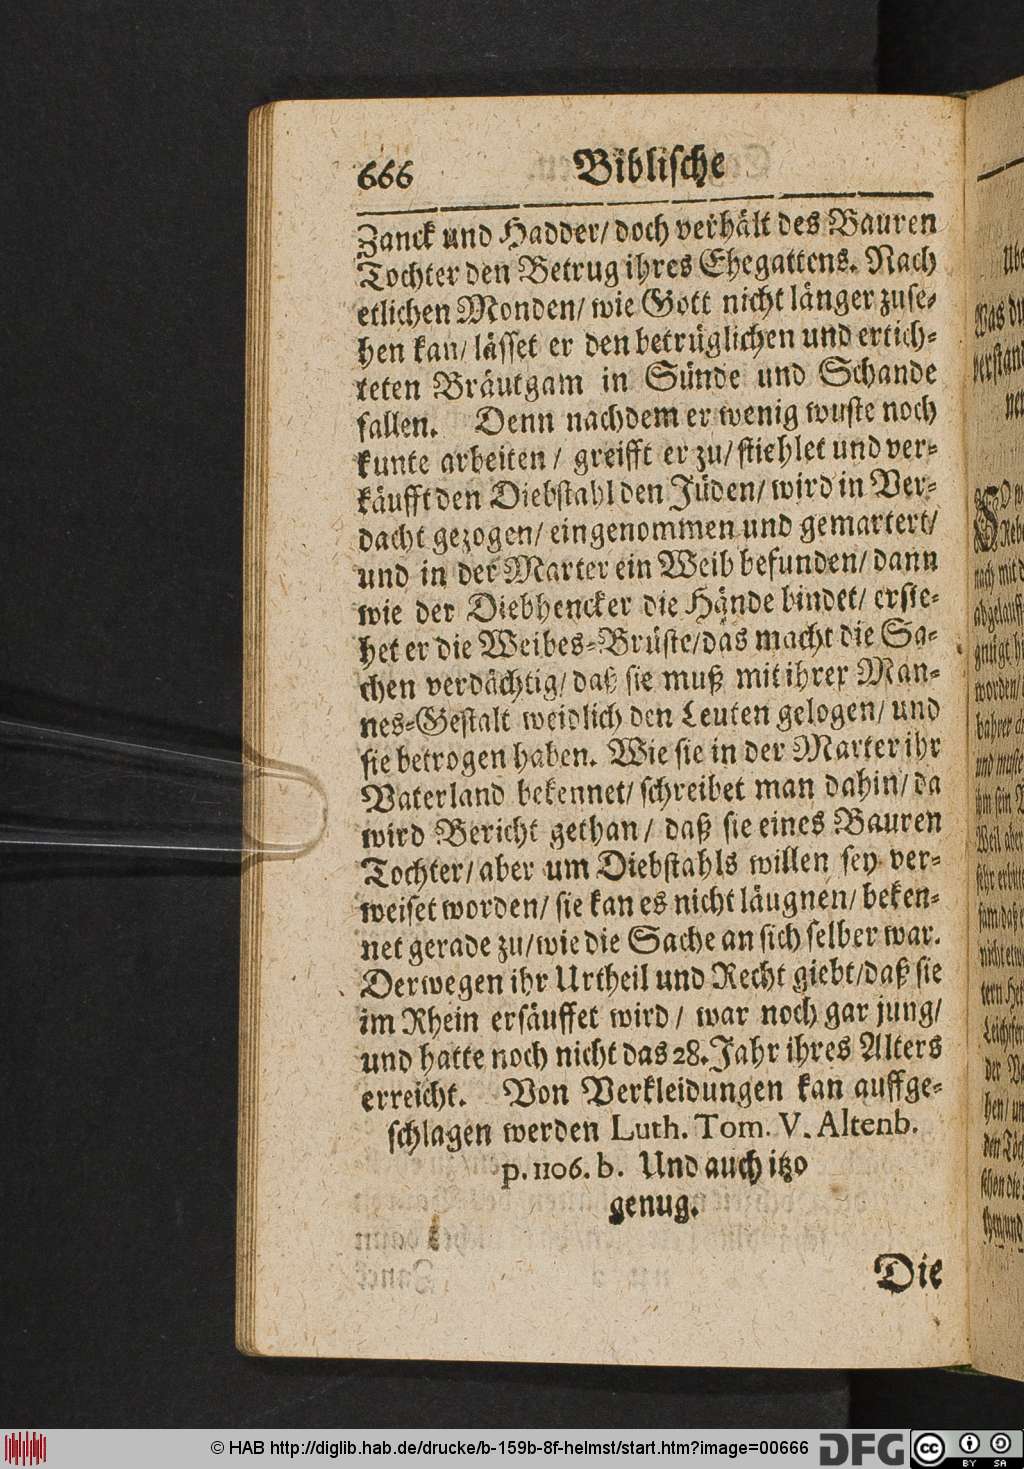 666 Biblische
Zanck und Hadder/ doch verhält des Bauren
Tochter den Betrug ihres Ehegattens. Nach
etlichen Monden/ wie Gott nicht länger zuse-
hen kan/ lässet er den betrüglichen und ertich-
teten Bräutgam in Sünde und Schande
fallen. Denn nachdem er wenig wuste noch
kunte arbeiten/ greifft er zu/ stiehlet und ver-
käufft den Diebstahl den Jüden/ wird in Ver-
dacht gezogen/ eingenommen und gemartert/
und in der Marter ein Weib befunden/ dann
wie der Diebhencker die Hände bindet/ ersie-
het er die Weibes-Brüste/ das macht die Sa-
chen verdächtig/ daß sie muß mit ihrer Man-
nes-Gestalt weidlich den Leuten gelogen/ und
sie betrogen haben. Wie sie in der Marter ihr
Vaterland bekennet/ schreibet man dahin/ da
wird Bericht gethan/ daß sie eines Bauren
Tochter/ aber um Diebstahls willen sey ver-
weiset worden/ sie kan es nicht läugnen/ beken-
net gerade zu/ wie die Sache an sich selber war.
Derwegen ihr Urtheil und Recht giebt/ daß sie
im Rhein ersäuffet wird/ war noch gar jung/
und hatte noch nicht das 28. Jahr ihres Alters
erreicht. Von Verkleidungen kan auffge-
schlagen werden Luth. Tom. V. Altenb.
p. 1106. b. Und auch itzo
genug.
Die
© HAB http://diglib.hab.de/drucke/b-159b-8f-helmst/start.htm?image=00666 DFG CC BY SA